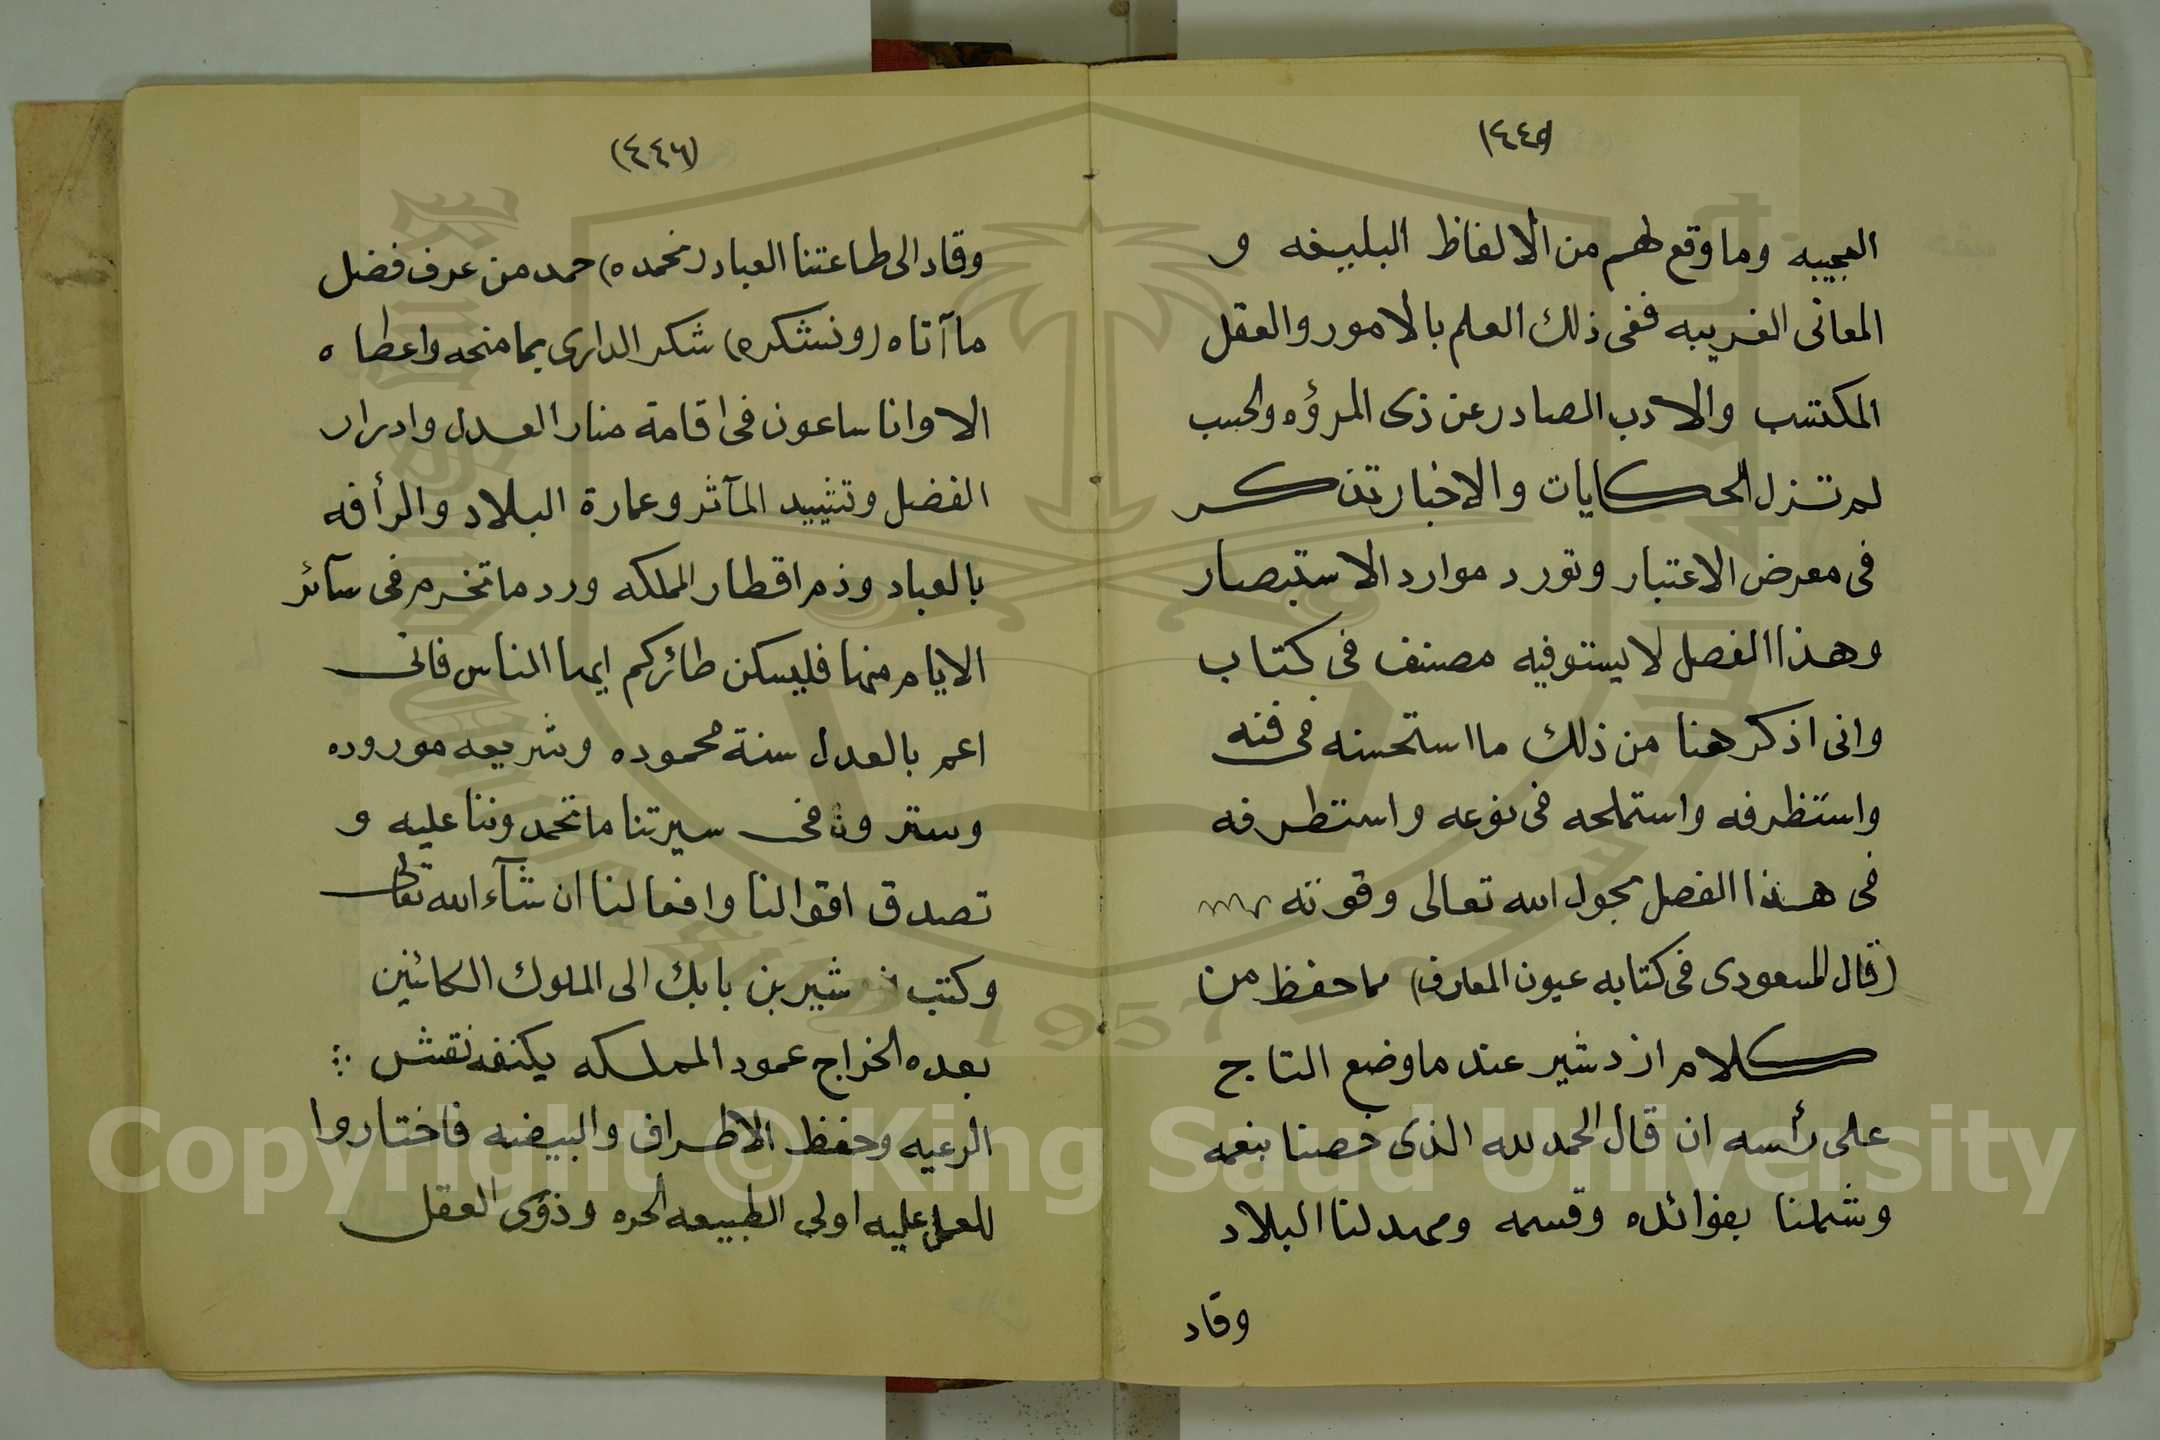 (٤٤٥)
العجيبه وما وقع لهم من الالفاظ البليغه و
المعانى الغريبه ففى ذلك العلم بالامور والعقل
المكتسب والادب الصادر عن ذى المرؤه والحسب
لم تزل الحكايات والاخبار تذكر
فى معرض الاعتبار وتورد موارد الاستبصار
وهذا الفصل لا يستوفيه مصنف فى كتاب
وانى اذكر هنا من ذلك ما استحسنه فى فنه
واستظرفه واستملحه فى نوعه واستطرفه
فى هذا الفصل بحول الله تعالى وقوته
(قال المسعودى فى كتابه عيون المعارف) مما حفظ من
كلام ازدشير عند ما وضع التاج
على رأسه ان قال الحمد لله الذى خصنا بنعمه
وشملنا بفوائده وقسمه ومهد لنا البلاد
وقاد
(٤٤٦)
وقاد الى طاعتنا العباد (نحمده) حمد من عرف فضل
ما آتاه (ونشكره) شكر الدارى بما منحه واعطاه
الا وانا ساعون فى اقامة منار العدل وادرار
الفضل وتشييد المآثر وعمارة البلاد والرأفه
بالعباد وذم اقطار المملكه ورد ما تخرم فى سآئر
الايام منها فليسكن طائركم ايها الناس فانى
اعم بالعدل سنة محموده وشريعه موروده
وسترون فى سيرتنا ما تحمدوننا عليه و
تصدق اقوالنا وافعالنا ان شآء الله تعالى
وكتب شير بن بابك الى الملوك الكائنين
بعده الخراج عمود المملكه يكنفه نقش
الرعيه وحفظ الاطراف والبيضه فاختاروا
للعمل عليه اولى الطبيعه الحره وذوى العقل
Copyright © King Saud University
King Saud University
1957